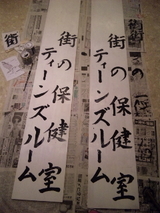 街の保健室
ティーンズルーム
街の保健室
ティーンズルーム
街